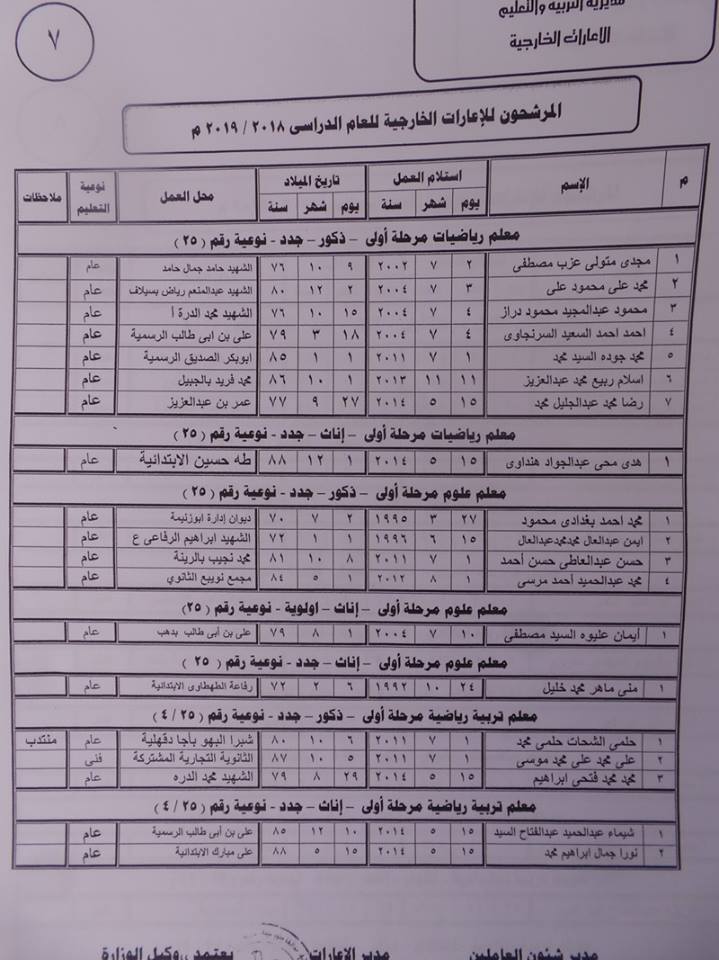 ٧
مديرية التربية والتعليم
الاعارات الخارجية
المرشحون للإعارات الخارجية للعام الدراسى ٢٠١٨ / ٢٠١٩ م
م الإسم استلام العمل تاريخ الميلاد محل العمل نوعية التعليم ملاحظات
يوم شهر سنة يوم شهر سنة
معلم رياضيات مرحلة أولى – ذكور – جدد - نوعية رقم ( ٢٥ )
١ مجدى متولى عزب مصطفى ٢ ٧ ٢٠٠٢ ٩ ١٠ ٧٦ الشهيد حامد جمال حامد عام
٢ محمد على محمود على ٣ ٧ ٢٠٠٤ ٢ ١٢ ٨٠ الشهيد عبدالمنعم رياض بسيلاف عام
٣ محمود عبدالمجيد محمود دراز ٤ ٧ ٢٠٠٤ ١٥ ١٠ ٧٦ الشهيد محمد الدرة أ عام
٤ احمد احمد السعيد السرنجاوى ٤ ٧ ٢٠٠٤ ١٨ ٣ ٧٩ على بن ابى طالب الرسمية عام
٥ محمد جوده السيد محمد ١ ٧ ٢٠١١ ١ ١ ٨٥ ابوبكر الصديق الرسمية عام
٦ اسلام ربيع محمد عبدالعزيز ١١ ١١ ٢٠١٣ ١ ١٠ ٨٦ محمد فريد بالجبيل عام
٧ رضا محمد عبدالجليل محمد ١٥ ٥ ٢٠١٤ ٢٧ ٩ ٧٧ عمر بن عبدالعزيز عام
معلم رياضيات مرحلة أولى – إناث – جدد - نوعية رقم ( ٢٥ )
١ هدى محى عبدالجواد هنداوى ١٥ ٥ ٢٠١٤ ١ ١٢ ٨٨ طه حسين الابتدائية عام
معلم علوم مرحلة أولى – ذكور – جدد - نوعية رقم ( ٢٥ )
١ محمد احمد بغدادى محمود ٢٧ ٣ ١٩٩٥ ٢ ٧ ٧٠ ديوان إدارة ابوزنيمة عام
٢ ايمن عبدالعال محمدمحمدعبدالعال ١٥ ٦ ١٩٩٦ ١ ١ ٧٢ الشهيد ابراهيم الرفاعى ع عام
٣ حسن عبدالعاطى حسن أحمد ١ ٧ ٢٠١١ ٨ ١٠ ٨١ محمد نجيب بالرينة عام
٤ محمد عبدالحميد أحمد مرسى ١ ٨ ٢٠١٢ ١ ٥ ٨٤ مجمع نويبع الثانوي عام
معلم علوم مرحلة أولى – إناث – اولوية - نوعية رقم ( ٢٥ )
١ أيمان عليوه السيد مصطفى ١٠ ٧ ٢٠٠٤ ١ ٨ ٧٩ على بن أبى طالب بدهب عام
معلم علوم مرحلة أولى – إناث – جدد - نوعية رقم ( ٢٥ )
١ منى ماهر محمد خليل ٢٤ ١٠ ١٩٩٢ ٦ ٢ ٧٢ رفاعة الطهطاوى الابتدائية عام
معلم تربية رياضية مرحلة أولى – ذكور – جدد - نوعية رقم ( ٢٥ / ٤ )
١ حلمى الشحات حلمى محمد ١ ٧ ٢٠١١ ٦ ١٠ ٨٠ شبرا البهو بأجا دقهلية عام منتدب
٢ على محمد على محمد موسى ١ ٧ ٢٠١١ ٥ ١٠ ٨٧ الثانوية التجارية المشتركة فنى
٣ محمد محمد فتحى ابراهيم ١٥ ٥ ٢٠١٤ ٢٩ ٨ ٧٩ الشهيد محمد الدره عام
معلم تربية رياضية مرحلة أولى – إناث – جدد - نوعية رقم ( ٢٥ / ٤ )
١ شيماء عبدالحميد عبدالفتاح السيد ١٥ ٥ ٢٠١٤ ١٠ ١٢ ٨٥ على بن أبى طالب الرسمية عام
٢ نورا جمال ابراهيم محمد ١٥ ٥ ٢٠١٤ ١٥ ٥ ٨٨ على مبارك الابتدائية عام
مدير شئون العاملين مدير الإعارات يعتمد ،، وكيل الوزارة